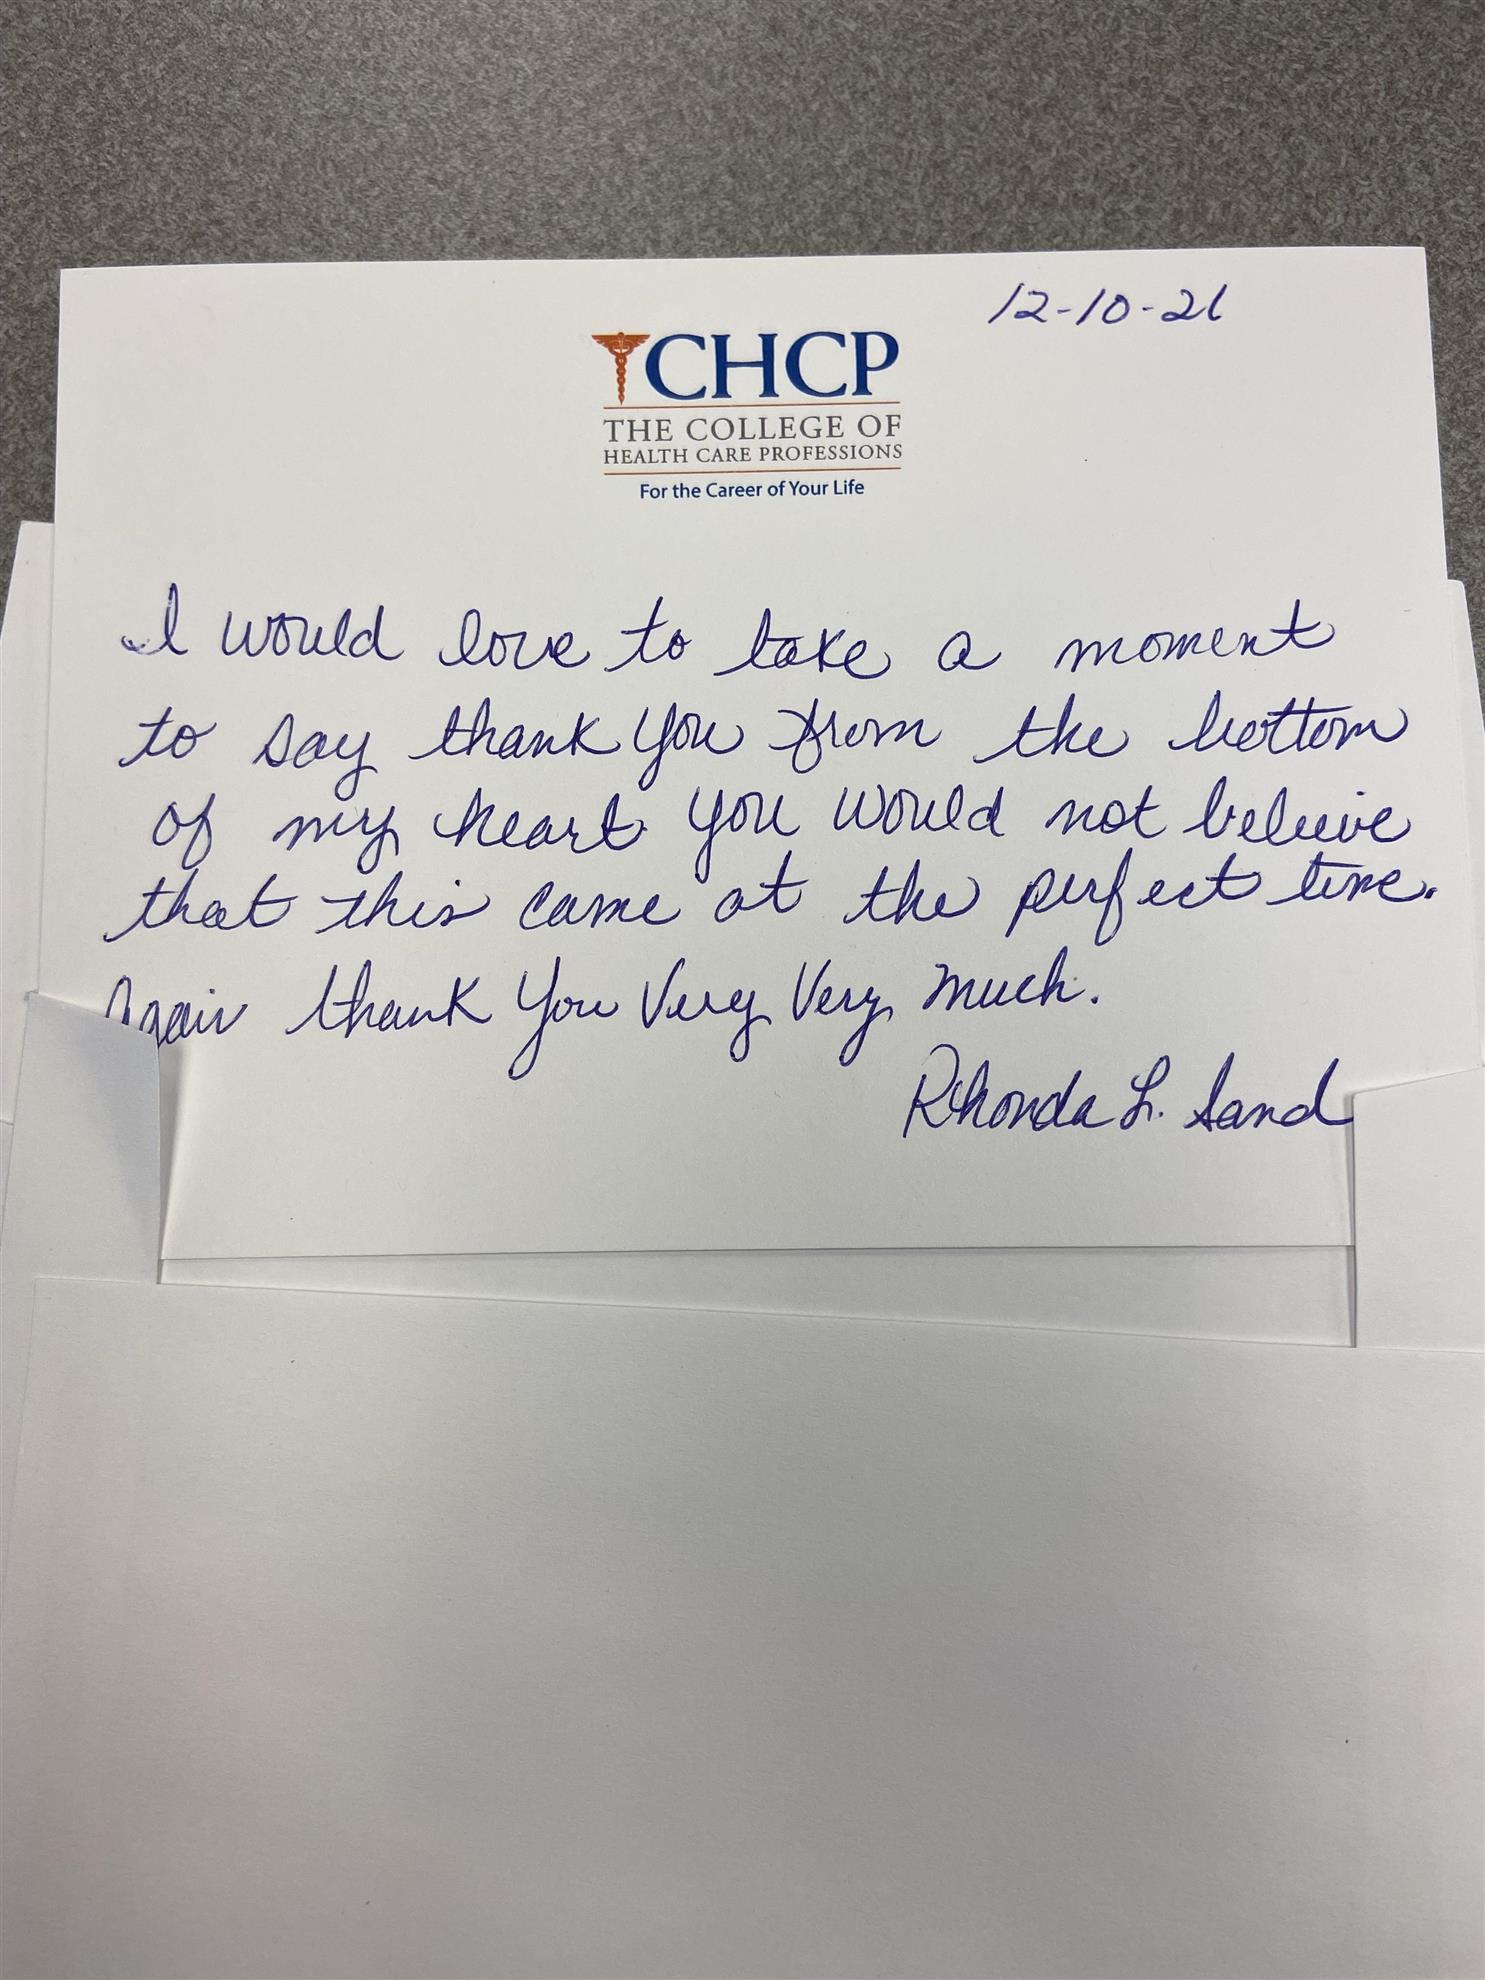 12-10-21
CHCP
THE COLLEGE OF
HEALTH CARE PROFESSIONS
For the Career of Your Life
I would love to take a moment
to say thank you from the bottom
of my heart you would not believe
that this came at the perfect time.
Again thank you Very Very much.
Rhonda L. Sand